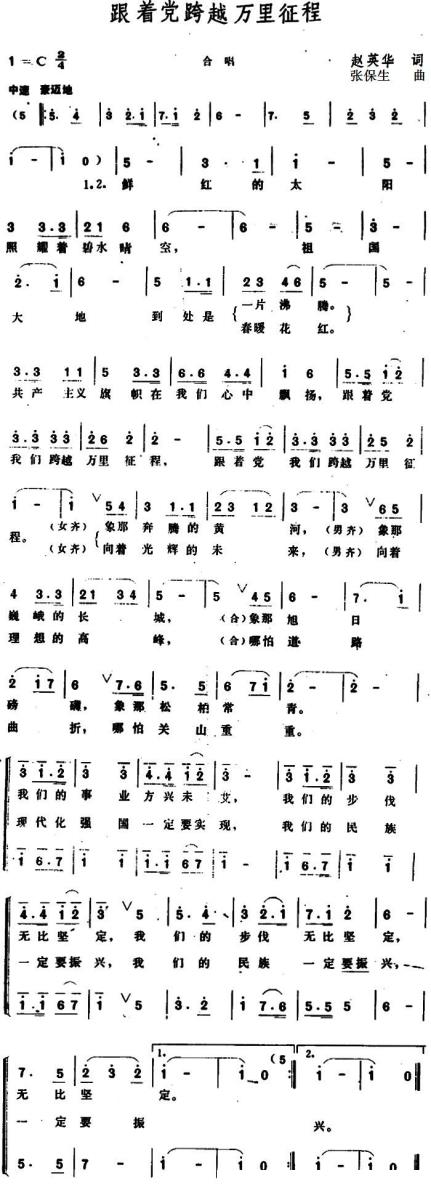 跟着党跨越万里征程
1=C 2/4 合唱 赵英华 词
中速 豪迈地 张保生 曲
(5 |: 5. 4 | 3 2.1 | 7.1 2 | 6 - | 7. 5 | 2 3 2 |
1 - | 1 0) | 5 - | 3. 1 | 1 - | 5 - |
1.2. 鲜 红 的 太 阳
3 3.3 | 2 1 6 | 6 - | 6 - | 5 - | 3 - |
照 耀着 碧水 晴 空， 祖 国
2. 1 | 6 - | 5 1.1 | 2 3 4 6 | 5 - | 5 - |
大 地 到 处是 { 一片 沸 腾。 }
春暖 花 红。
3.3 1 1 | 5 3.3 | 6.6 4.4 | 1 6 | 5.5 1 2 |
共产 主义 旗 帜在 我们 心中 飘 扬，跟着 党
3.3 3 3 | 2 6 2 | 2 - | 5.5 1 2 | 3.3 3 3 | 2 5 2 |
我们 跨越 万里 征 程， 跟着 党 我们 跨越 万里 征
1 - | 1 5 4 | 3 1.1 | 2 3 1 2 | 3 - | 3 6 5 |
程。 (女齐) { 象那 奔 腾的 黄 河，(男齐) 象那
(女齐) 向着 光 辉的 未 来，(男齐) 向着
4 3.3 | 2 1 3 4 | 5 - | 5 4 5 | 6 - | 7. 1 |
巍 峨的 长 城， (合)象那 旭 日
理 想的 高 峰， (合)哪怕 道 路
2 1 7 | 6 7.6 | 5. 5 | 6 7 1 | 2 - | 2 - |
磅 礴，象那 松 柏 常 青。
曲 折，哪怕 关 山 重 重。
3 1.2 | 3 3 | 4.4 1 2 | 3 3 | 3 1.2 | 3 3 |
我 们的 事 业 方兴 未 艾， 我 们的 步 伐
现 代化 强 国 一定 要实 现， 我 们的 民 族
1 6.7 | 1 1 | 1.1 6 7 | 1 1 | 1 6.7 | 1 1 |
4.4 1 2 | 3 5 | 5. 4 | 3 2.1 | 7.1 2 | 6 - |
无比 坚 定，我 们 的 步 伐 无比 坚 定，
一定 要振 兴，我 们 的 民 族 一定 要振 兴，
1.1 6 7 | 1 5 | 3. 2 | 1 7.6 | 5.5 5 | 6 - |
7. 5 | 2 3 2 | 1. 1 - | 1 0 (5 :| 2. 1 - | 1 0 |
无 比 坚 定。
一 定 要 振 兴。
5. 5 | 7 - | 1 - | 1 0 :| 1 - | 1 0 |